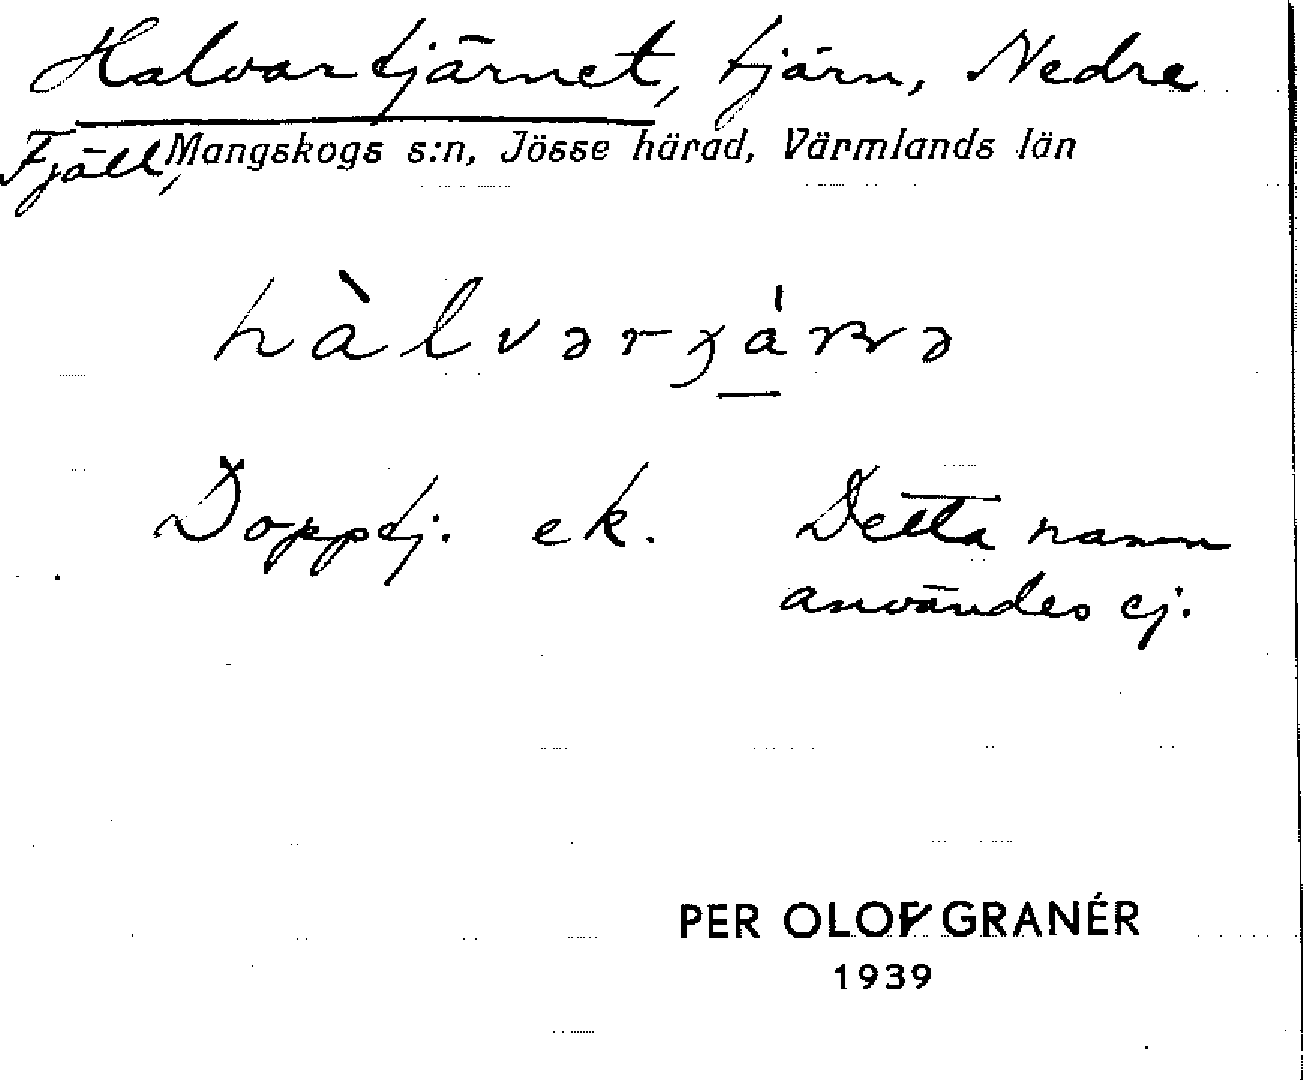 Halvartjärnet, tjärn, Nedre
Fjäll, Mangskogs s:n, Jösse härad, Värmlands län
Dopptj. ek. Detta namn
användes ej.
PER OLOF GRANÉR
1939